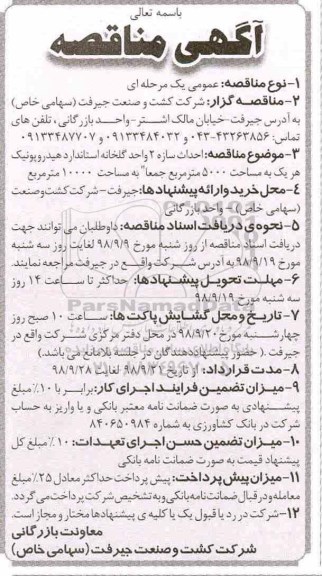 باسمه تعالی
آگهی مناقصه
۱-نوع مناقصه: عمومی یک مرحله ای
۲-مناقصه گزار: شرکت کشت و صنعت جیرفت (سهامی خاص)
به آدرس جیرفت-خیابان مالک اشتر-واحد بازرگانی، تلفن های
تماس: ۴۳۲۶۳۸۵۶-۰۴۳ و ۰۹۱۳۳۴۸۴۰۳۲ و ۰۹۱۳۳۴۸۷۷۰۷
۳-موضوع مناقصه: احداث سازه ۲ واحد گلخانه استاندارد هیدروپونیک
هر یک به مساحت ۵۰۰۰ مترمربع جمعا" به مساحت ۱۰۰۰۰ مترمربع
۴-محل خرید و ارائه پیشنهادها: جیرفت-شرکت کشت وصنعت
(سهامی خاص)-واحد بازرگانی
۵-نحوه ی دریافت اسناد مناقصه: داوطلبان می توانند جهت
دریافت اسناد مناقصه از روز شنبه مورخ ۹۸/۹/۹ لغایت روز سه شنبه
مورخ ۹۸/۹/۱۹ به آدرس شرکت واقع در جیرفت مراجعه نمایند.
۶-مهلت تحویل پیشنهادها: حداکثر تا ساعت ۱۴ روز
سه شنبه مورخ ۹۸/۹/۱۹
۷-تاریخ و محل گشایش پاکت ها: ساعت ۱۰ صبح روز
چهارشنبه مورخ ۹۸/۹/۲۰ در محل دفتر مرکزی شرکت واقع در
جیرفت. (حضور پیشنهاددهندگان در جلسه بلامانع می باشد.)
۸-مدت قرارداد: از تاریخ ۹۸/۹/۲۱ لغایت ۹۸/۹/۲۸
۹-میزان تضمین فرایند اجرای کار: برابر با ۱۰٪ مبلغ
پیشنهادی به صورت ضمانت نامه معتبر بانکی و یا واریز به حساب
شرکت در بانک کشاورزی به شماره ۸۴۰۶۵۰۹۸۴
۱۰-میزان تضمین حسن اجرای تعهدات: ۱۰٪ مبلغ کل
پیشنهاد قیمت به صورت ضمانت نامه بانکی
۱۱-میزان پیش پرداخت: پیش پرداخت حداکثر معادل ۲۵٪ مبلغ
معامله و در قبال ضمانت نامه بانکی و به تشخیص شرکت پرداخت می گردد.
۱۲-شرکت در رد یا قبول یک یا کلیه ی پیشنهادها مختار و مجاز است.
معاونت بازرگانی
شرکت کشت و صنعت جیرفت (سهامی خاص)
ParsNamadData